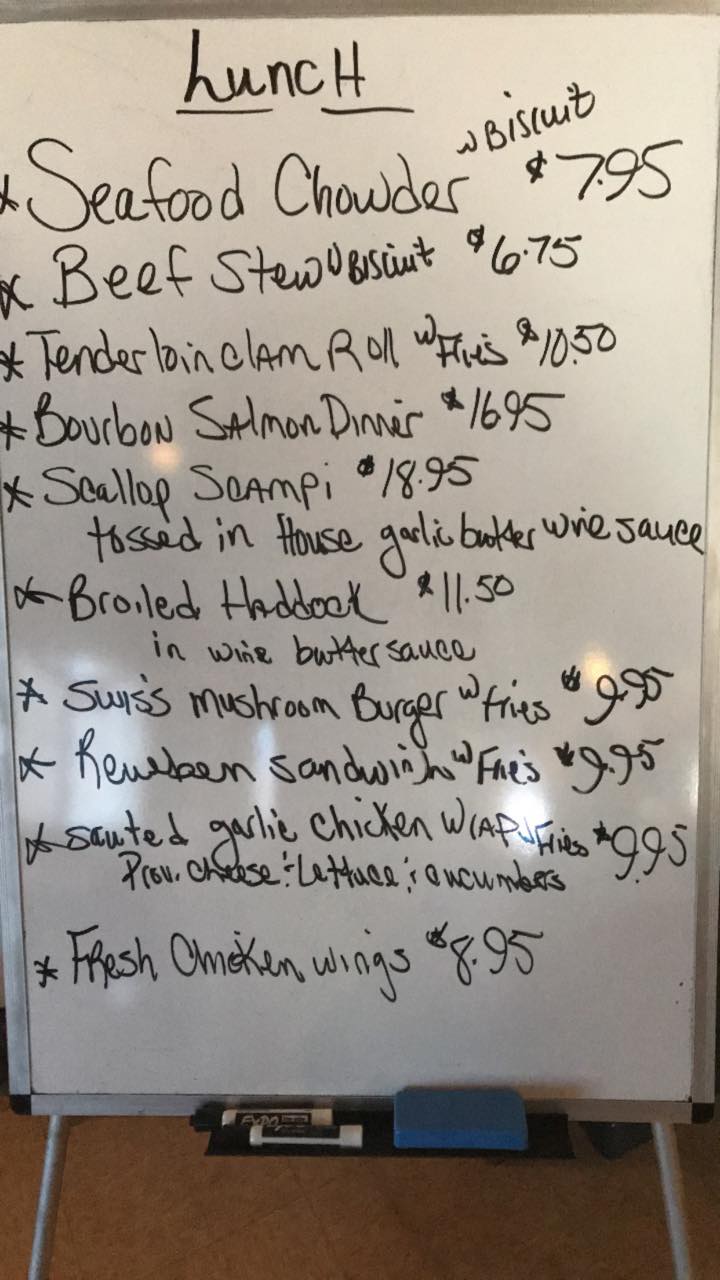 Lunch
* Seafood Chowder w Biscuit $7.95
* Beef Stew w Biscuit $6.75
* Tenderloin Clam Roll w Fries $10.50
* Bourbon Salmon Dinner $16.95
* Scallop Scampi $18.95
tossed in House garlic butter wine sauce
* Broiled Haddock $11.50
in wine butter sauce
* Swiss mushroom Burger w fries $9.95
* Reueben sandwinh w Fries $9.95
* Sauted garlic Chicken Wrap w Fries $9.95
Prov. Cheese : Lettuce : cucumbers
* Fresh Chicken wings $8.95
EXPO